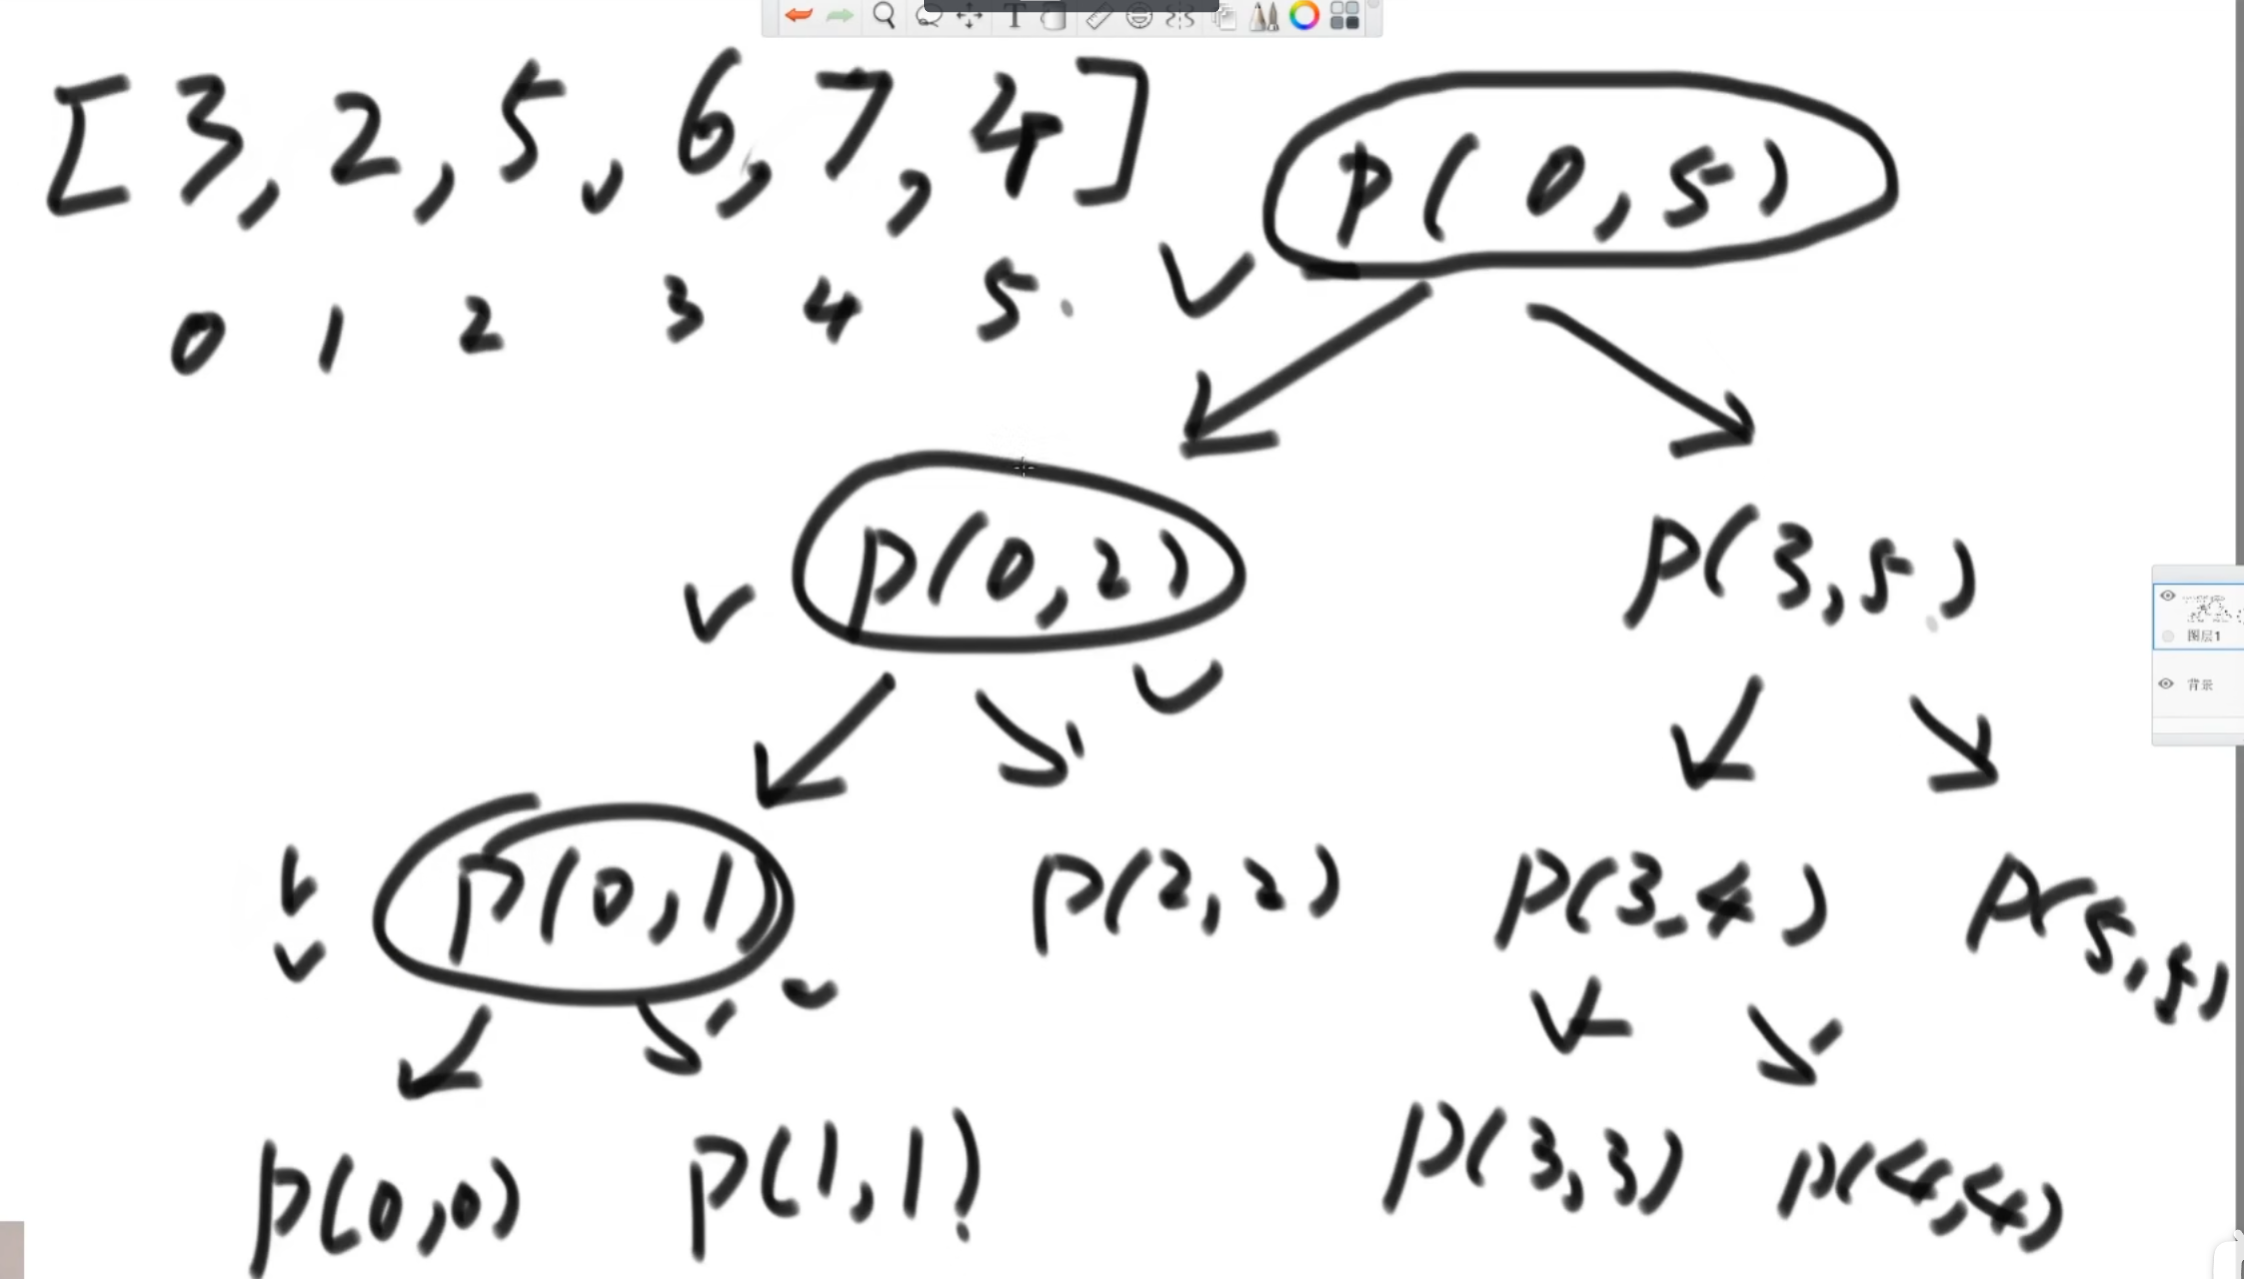 [3, 2, 5, 6, 7, 4]
0 1 2 3 4 5
p(0,5)
p(0,2) p(3,5)
p(0,1) p(2,2) p(3,4) p(5,5)
p(0,0) p(1,1) p(3,3) p(4,4)
图层1
背景